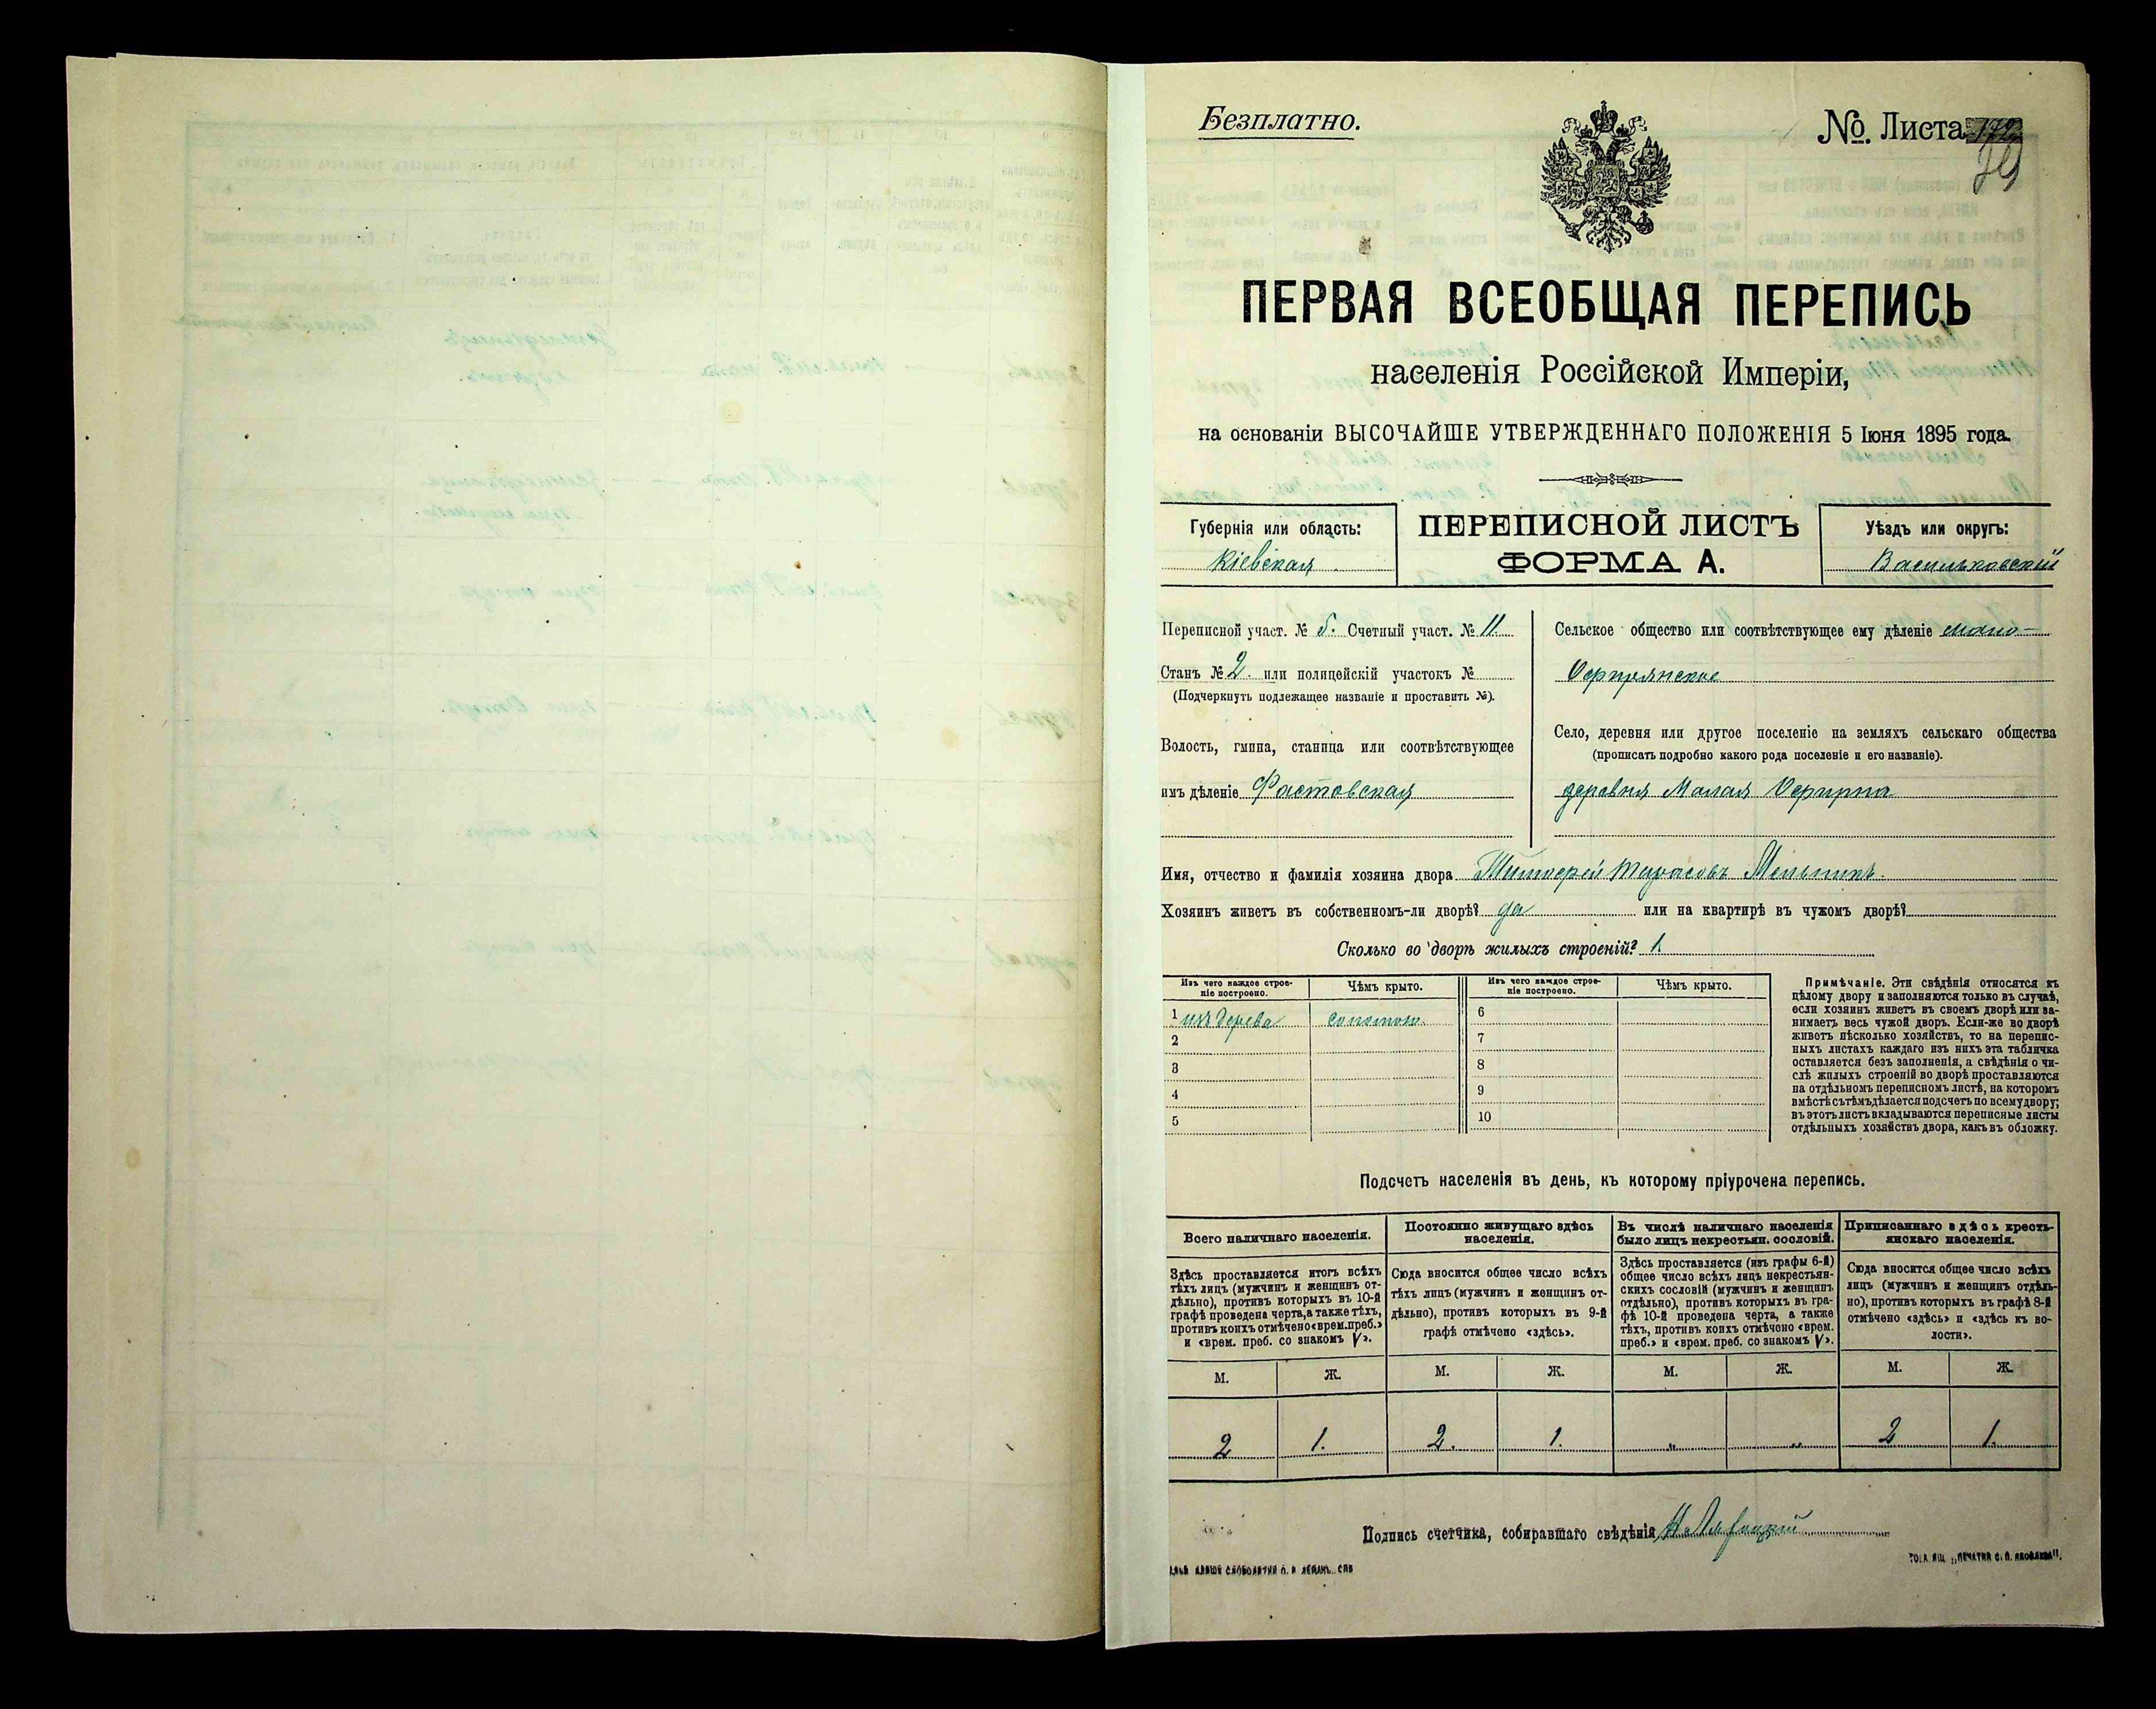 Безплатно.
№ Листа
ПЕРВАЯ ВСЕОБЩАЯ ПЕРЕПИСЬ
населенія Россійской Имперіи,
на основаніи ВЫСОЧАЙШЕ УТВЕРЖДЕННАГО ПОЛОЖЕНІЯ 5 Іюня 1895 года.
Губернія или область:
Кіевская
ПЕРЕПИСНОЙ ЛИСТЪ
ФОРМА А.
Уѣздъ или округъ:
Васильковскій
Переписной участ. № 5. Счетный участ. № 11.
Станъ № 2. или полицейскій участокъ №
(Подчеркнуть подлежащее названіе и проставить №).
Волость, гмина, станица или соотвѣтствующее
имъ дѣленіе Фастовская
Сельское общество или соотвѣтствующее ему дѣленіе мало-
Село, деревня или другое поселеніе на земляхъ сельскаго общества
(прописать подробно какого рода поселеніе и его названіе).
деревня Малая
Имя, отчество и фамилія хозяина двора Тимофей Тарасовъ Мельникъ.
Хозяинъ живетъ въ собственномъ-ли дворѣ? да или на квартирѣ въ чужомъ дворѣ?
Сколько во дворѣ жилыхъ строеній? 1.
Изъ чего каждое строе-
ніе построено.
Чѣмъ крыто.
Изъ чего каждое строе-
ніе построено.
Чѣмъ крыто.
1 изъ дерева соломою.
2
3
4
5
6
7
8
9
10
Примѣчаніе. Эти свѣдѣнія относятся къ
цѣлому двору и заполняются только въ случаѣ,
если хозяинъ живетъ въ своемъ дворѣ или за-
нимаетъ весь чужой дворъ. Если-же во дворѣ
живетъ нѣсколько хозяйствъ, то на перепис-
ныхъ листахъ каждаго изъ нихъ эта табличка
оставляется безъ заполненія, а свѣдѣнія о чи-
слѣ жилыхъ строеній во дворѣ проставляются
на отдѣльномъ переписномъ листѣ, на которомъ
вмѣстѣ съ тѣмъ дѣлается подсчетъ по всему двору;
въ этотъ листъ вкладываются переписные листы
отдѣльныхъ хозяйствъ двора, какъ въ обложку.
Подсчетъ населенія въ день, къ которому пріурочена перепись.
Всего наличнаго населенія.
Здѣсь проставляется итогъ всѣхъ
тѣхъ лицъ (мужчинъ и женщинъ от-
дѣльно), противъ которыхъ въ 10-й
графѣ проведена черта, а также тѣхъ,
противъ коихъ отмѣчено «врем. преб.»
и «врем. преб. со знакомъ V».
Постоянно живущаго здѣсь
населенія.
Сюда вносится общее число всѣхъ
тѣхъ лицъ (мужчинъ и женщинъ от-
дѣльно), противъ которыхъ въ 9-й
графѣ отмѣчено «здѣсь».
Въ числѣ наличнаго населенія
было лицъ некрестьян. сословій.
Здѣсь проставляется (изъ графы 6-й)
общее число всѣхъ лицъ некрестьян-
скихъ сословій (мужчинъ и женщинъ
отдѣльно), противъ которыхъ въ гра-
фѣ 10-й проведена черта, а также
тѣхъ, противъ коихъ отмѣчено «врем.
преб.» и «врем. преб. со знакомъ V».
Приписаннаго здѣсь кресть-
янскаго населенія.
Сюда вносится общее число всѣхъ
лицъ (мужчинъ и женщинъ отдѣль-
но), противъ которыхъ въ графѣ 8-й
отмѣчено «здѣсь» и «здѣсь къ во-
лости».
М. Ж. М. Ж. М. Ж. М. Ж.
2 1. 2. 1. „ „ 2 1.
Подпись счетчика, собиравшаго свѣдѣнія